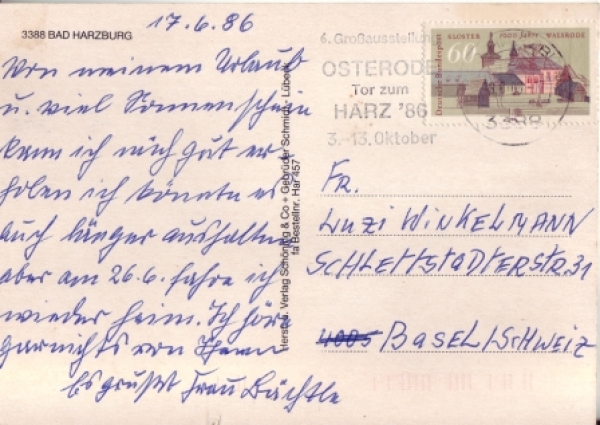 17.6.86
3388 BAD HARZBURG
Von meinem Urlaub
u. viel Sonnenschein
kann ich mich gut er
holen ich könnte es
auch länger aushalten
aber am 26.6. fahre ich
wieder heim. Ich höre
garnichts von Ihnen
Es grüßt Frau Bächtle
Herstellg. Verlag Schöning & Co + Gebrüder Schmidt, Lübeck
Bestellnr. Har 457
6. Großausstellung
OSTERODE
Tor zum
HARZ '86
3.-13. Oktober
Deutsche Bundespost
KLOSTER 1000 Jahre WALSRODE
60
3388
FR.
LUZI WINKELMANN
SCHLETTSTADTERSTR. 31
4005 BASEL/SCHWEIZ